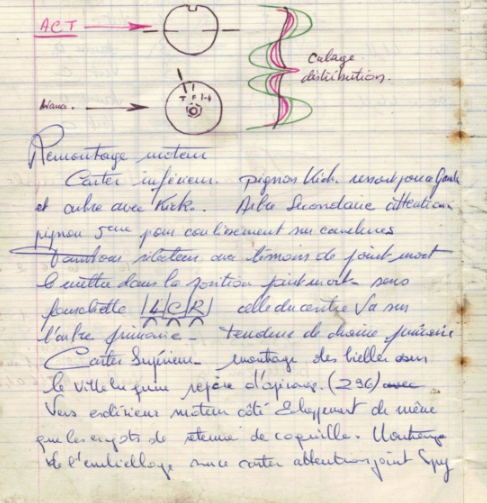 ACT
Calage
distribution.
T F 1-4
Remontage moteur
Carter inférieur. pignon Kick. ressort pour
et arbre avec Kick. Arbre Secondaire attention
pignon 5eme pour coulissement sur canelures
Tambour sélecteur témoins de point mort
le mettre dans la position point mort sens
fourchette |L|C|R| celle du centre Va sur
l'arbre primaire - tendeur de chaine primaire
Carter Supérieur - montage des bielles sur
le villebrequin repère d'épaisage. (296)
Vers extérieur moteur côté Echappement de même
que les ergots de retenue de coquille. Montage
de l'embiellage sur ce carter attention joint Spy